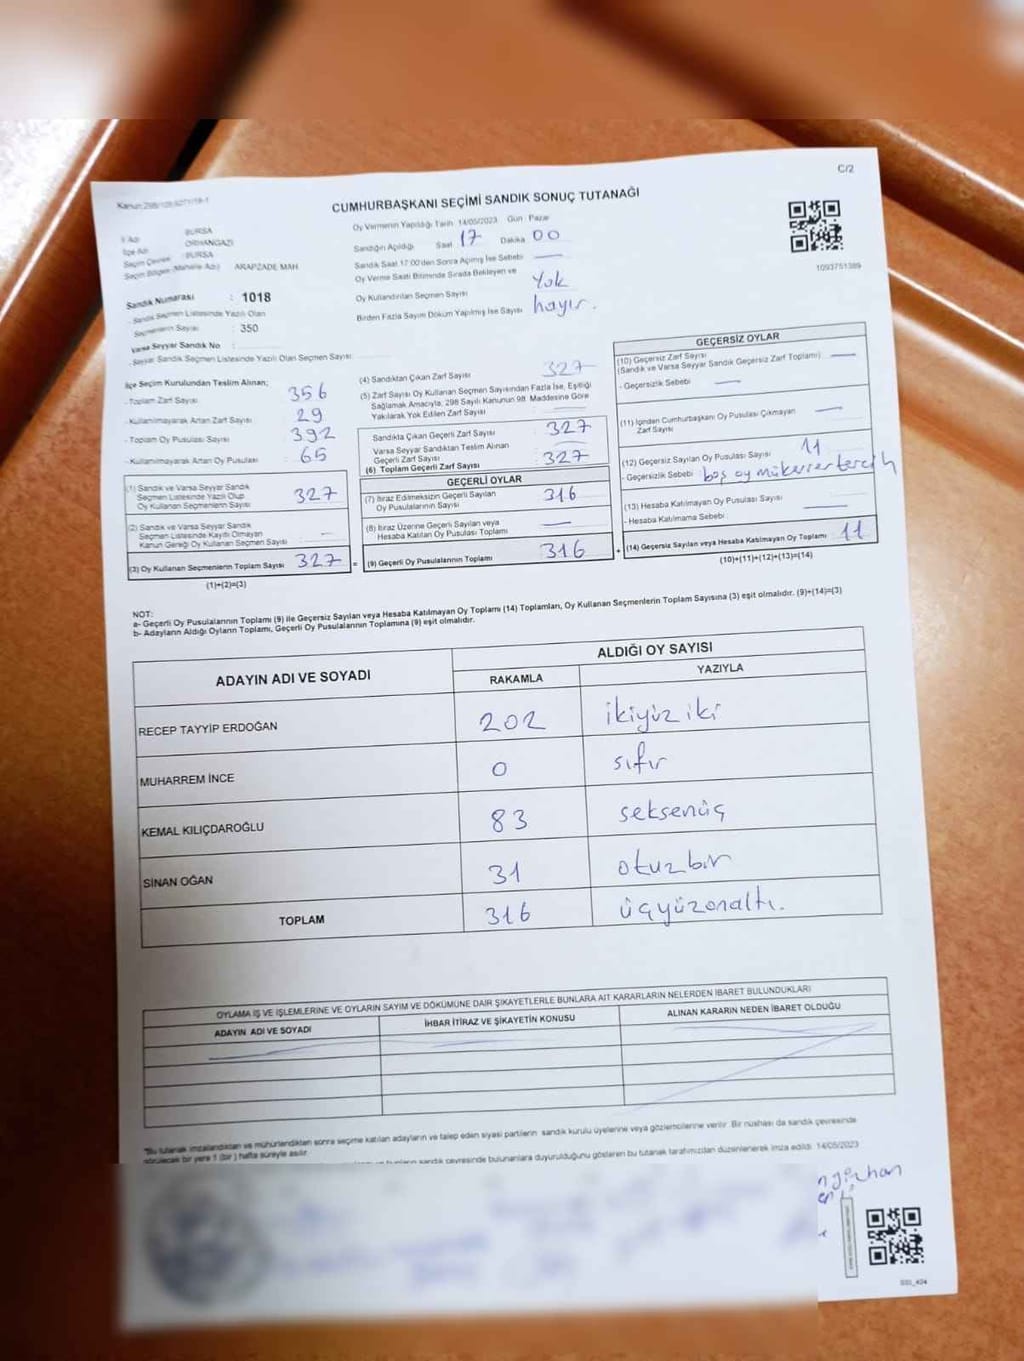 C/2
CUMHURBAŞKANI SEÇİMİ SANDIK SONUÇ TUTANAĞI
İl Adı : BURSA
İlçe Adı : ORHANGAZİ
Seçim Çevresi : BURSA
Seçim Bölgesi (Mahalle Adı) : ARAPZADE MAH
Sandık Numarası : 1018
- Sandık Seçmen Listesinde Yazılı Olan Seçmenlerin Sayısı : 350
Varsa Seyyar Sandık No :
- Seyyar Sandık Seçmen Listesinde Yazılı Olan Seçmen Sayısı :
Oy Vermenin Yapıldığı Tarih 14/05/2023 Gün : Pazar
Sandığın Açıldığı Saat 17 Dakika 00
Sandık Saat 17:00'den Sonra Açılmış İse Sebebi —
Oy Verme Saati Bitiminde Sırada Bekleyen ve
Oy Kullandırılan Seçmen Sayısı Yok
Birden Fazla Sayım Döküm Yapılmış İse Sayısı hayır.
1093751389
İlçe Seçim Kurulundan Teslim Alınan;
- Toplam Zarf Sayısı : 356
- Kullanılmayarak Artan Zarf Sayısı : 29
- Toplam Oy Pusulası Sayısı : 392
- Kullanılmayarak Artan Oy Pusulası : 65
(1) Sandık ve Varsa Seyyar Sandık
Seçmen Listesinde Yazılı Olup
Oy Kullanan Seçmenlerin Sayısı : 327
(2) Sandık ve Varsa Seyyar Sandık
Seçmen Listesinde Kaydı Olmayan
Kanun Gereği Oy Kullanan Seçmen Sayısı : —
(3) Oy Kullanan Seçmenlerin Toplam Sayısı : 327
(1)+(2)=(3)
(4) Sandıktan Çıkan Zarf Sayısı : 327
(5) Zarf Sayısı Oy Kullanan Seçmen Sayısından Fazla İse, Eşitliği
Sağlamak Amacıyla, 298 Sayılı Kanunun 98. Maddesine Göre
Yakılarak Yok Edilen Zarf Sayısı : —
Sandıkta Çıkan Geçerli Zarf Sayısı : 327
Varsa Seyyar Sandıktan Teslim Alınan
Geçerli Zarf Sayısı : —
(6) Toplam Geçerli Zarf Sayısı : 327
GEÇERLİ OYLAR
(7) İtiraz Edilmeksizin Geçerli Sayılan
Oy Pusulalarının Sayısı : 316
(8) İtiraz Üzerine Geçerli Sayılan veya
Hesaba Katılan Oy Pusulası Toplamı : —
(9) Geçerli Oy Pusulalarının Toplamı : 316
GEÇERSİZ OYLAR
(10) Geçersiz Zarf Sayısı
(Sandık ve Varsa Seyyar Sandık Geçersiz Zarf Toplamı) : —
- Geçersizlik Sebebi : —
(11) İçinden Cumhurbaşkanı Oy Pusulası Çıkmayan
Zarf Sayısı : —
(12) Geçersiz Sayılan Oy Pusulası Sayısı : 11
- Geçersizlik Sebebi : boş oy mükerrer tercih
(13) Hesaba Katılmayan Oy Pusulası Sayısı : —
- Hesaba Katılmama Sebebi :
(14) Geçersiz Sayılan veya Hesaba Katılmayan Oy Toplamı : 11
(10)+(11)+(12)+(13)=(14)
NOT:
a- Geçerli Oy Pusulalarının Toplamı (9) ile Geçersiz Sayılan veya Hesaba Katılmayan Oy Toplamı (14) Toplamları, Oy Kullanan Seçmenlerin Toplam Sayısına (3) eşit olmalıdır. (9)+(14)=(3)
b- Adayların Aldığı Oyların Toplamı, Geçerli Oy Pusulalarının Toplamına (9) eşit olmalıdır.
ADAYIN ADI VE SOYADI ALDIĞI OY SAYISI
RAKAMLA YAZIYLA
RECEP TAYYİP ERDOĞAN 202 ikiyüz iki
MUHARREM İNCE 0 sıfır
KEMAL KILIÇDAROĞLU 83 seksenüç
SİNAN OĞAN 31 otuzbir
TOPLAM 316 üçyüzonaltı.
OYLAMA İŞ VE İŞLEMLERİNE VE OYLARIN SAYIM VE DÖKÜMÜNE DAİR ŞİKAYETLERLE BUNLARA AİT KARARLARIN NELERDEN İBARET BULUNDUKLARI
ADAYIN ADI VE SOYADI İHBAR İTİRAZ VE ŞİKAYETİN KONUSU ALINAN KARARIN NEDEN İBARET OLDUĞU
"Bu tutanak imzalandıktan ve mühürlendikten sonra seçime katılan adayların ve talep eden siyasi partilerin sandık kurulu üyelerine veya gözlemcilerine verilir. Bir nüshası da sandık çevresinde
görülecek bir yere 1 (bir) hafta süreyle asılır.
sandık çevresinde bulunanlara duyurulduğunu gösteren bu tutanak tarafımızdan düzenlenerek imza edildi. 14/05/2023